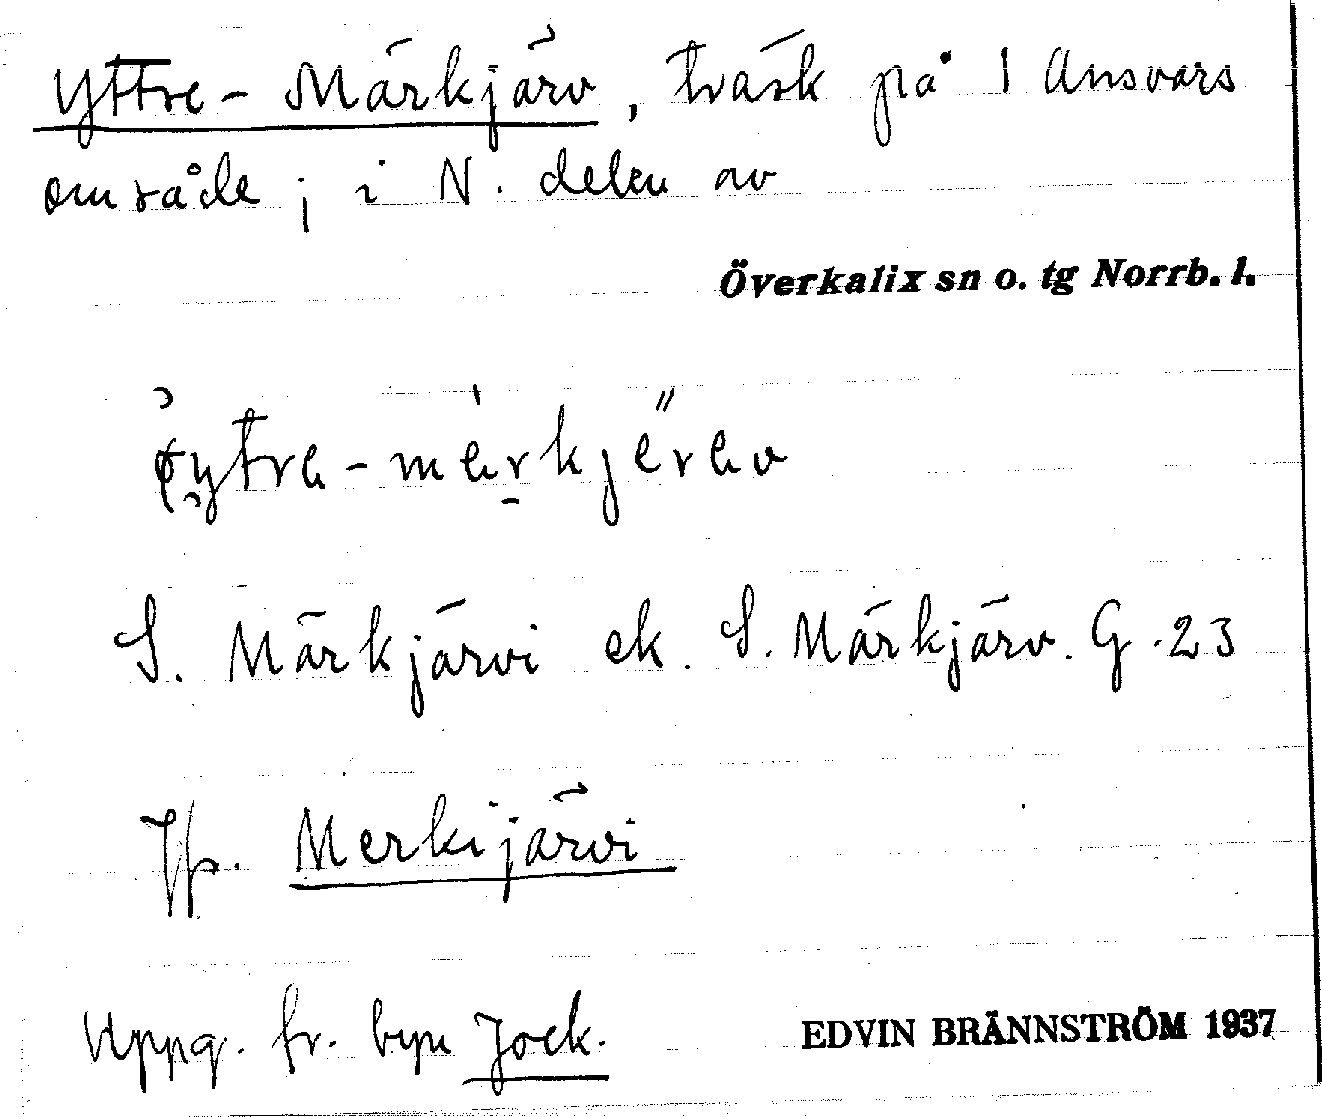 Yttre-Märkjärv, träsk på 1 Ansvars
område; i N. delen av
Överkalix sn o. tg Norrb. l.
S. Märkjärvi ek. S. Märkjärv. G. 23
Jfr. Merkijärvi
Uppg. fr. byn Jock.
EDVIN BRÄNNSTRÖM 1937